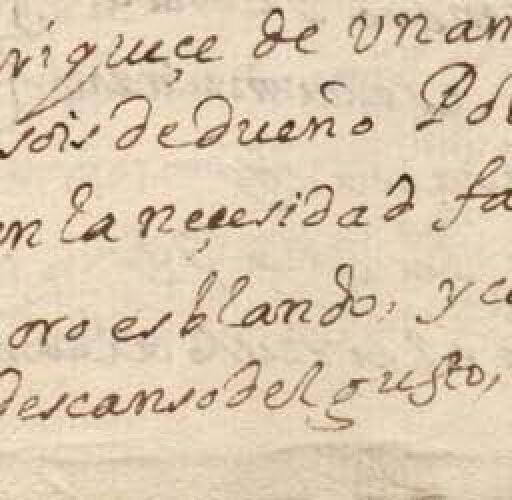 riquuçe de vn am
sois de dueño Pol
en la neçesidad fa
oro es blando, y co
descanso del gusto,